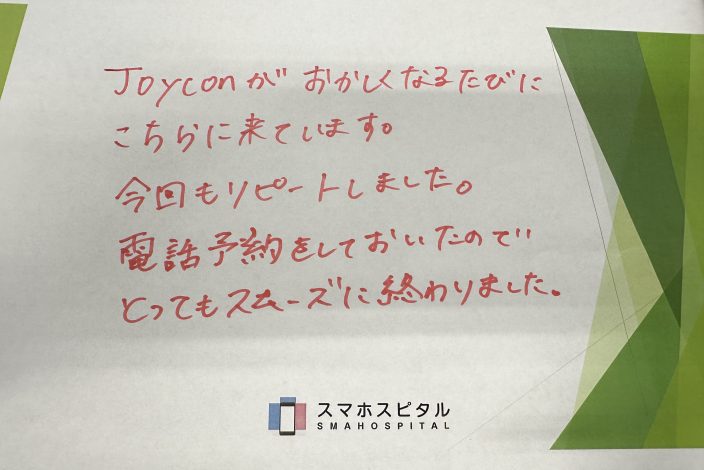 Joyconがおかしくなるたびに
こちらに来ています。
今回もリピートしました。
電話予約をしておいたので
とってもスムーズに終わりました。
スマホスピタル
SMAHOSPITAL